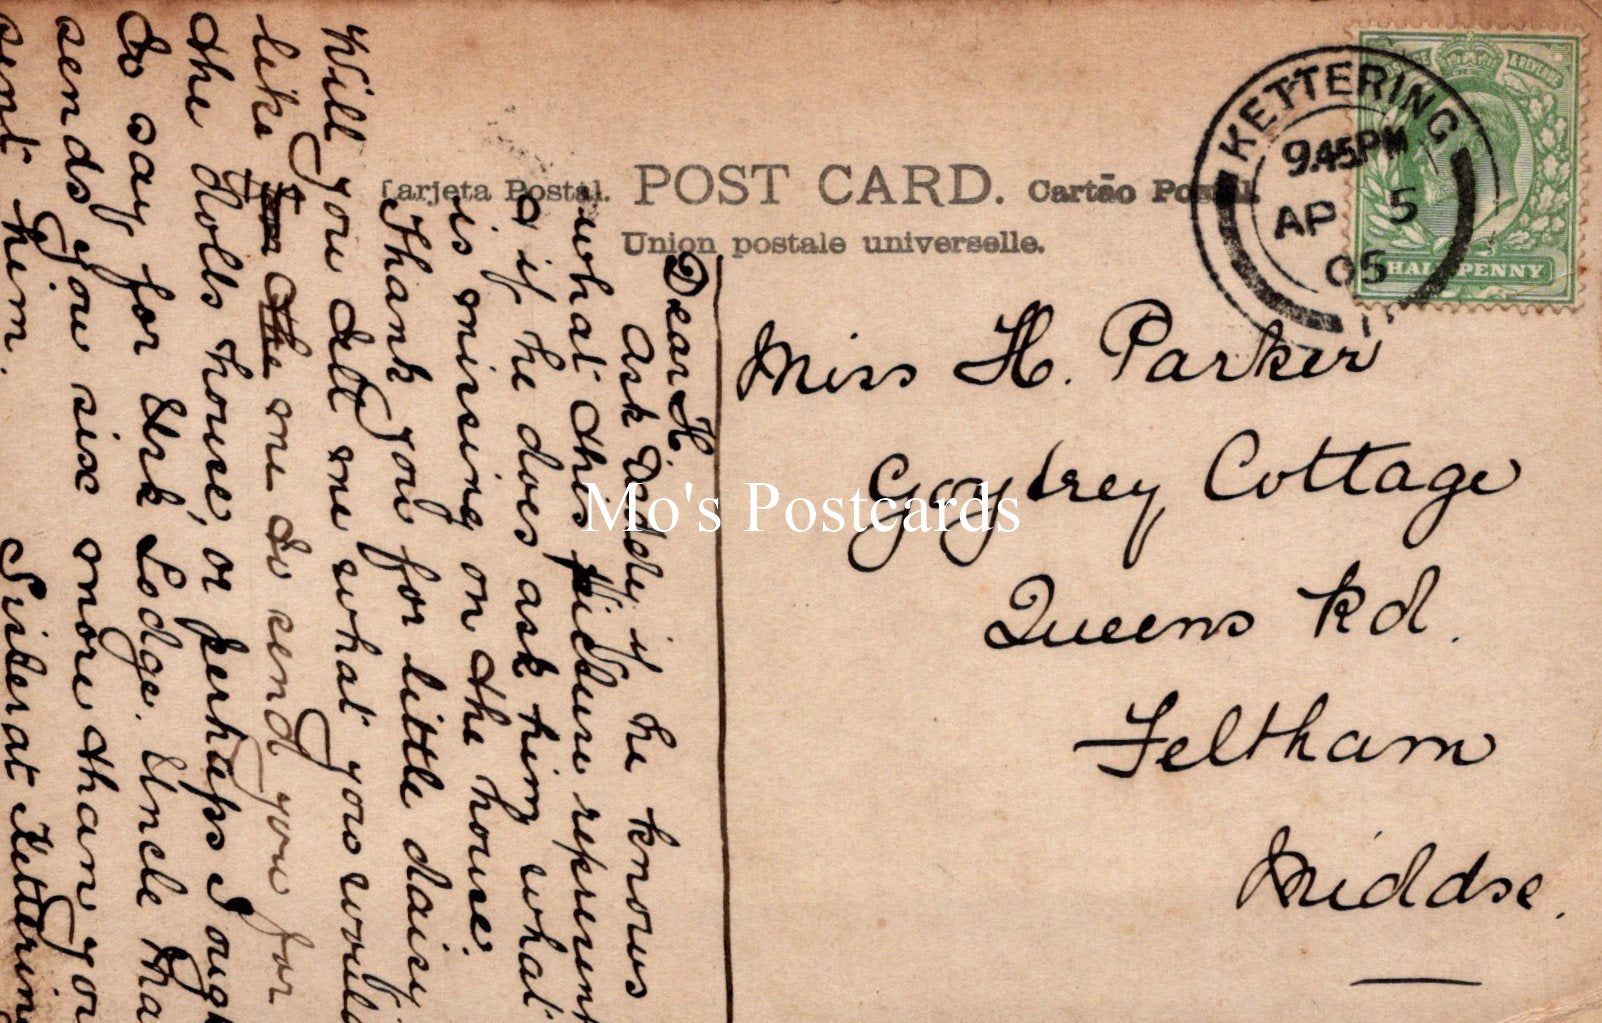 Tarjeta Postal. POST CARD. Cartão Postal.
Union postale universelle.
KETTERING
9.45PM
AP 5
05
& REVENUE
HALFPENNY
Miss H. Parker
Cottage
Queens Rd.
Feltham
Middsx.
Dear H.
Ask Daddy if he knows
what this picture represents
& if he does ask him what
is missing on the house.
Thank you for little daisy
Will you tell me what you would
like for the me to send you for
the dolls house, or perhaps I ought
to say for Erk Lodge. Uncle
sends you six more than you
sent him.
Kettering
Mo's Postcards